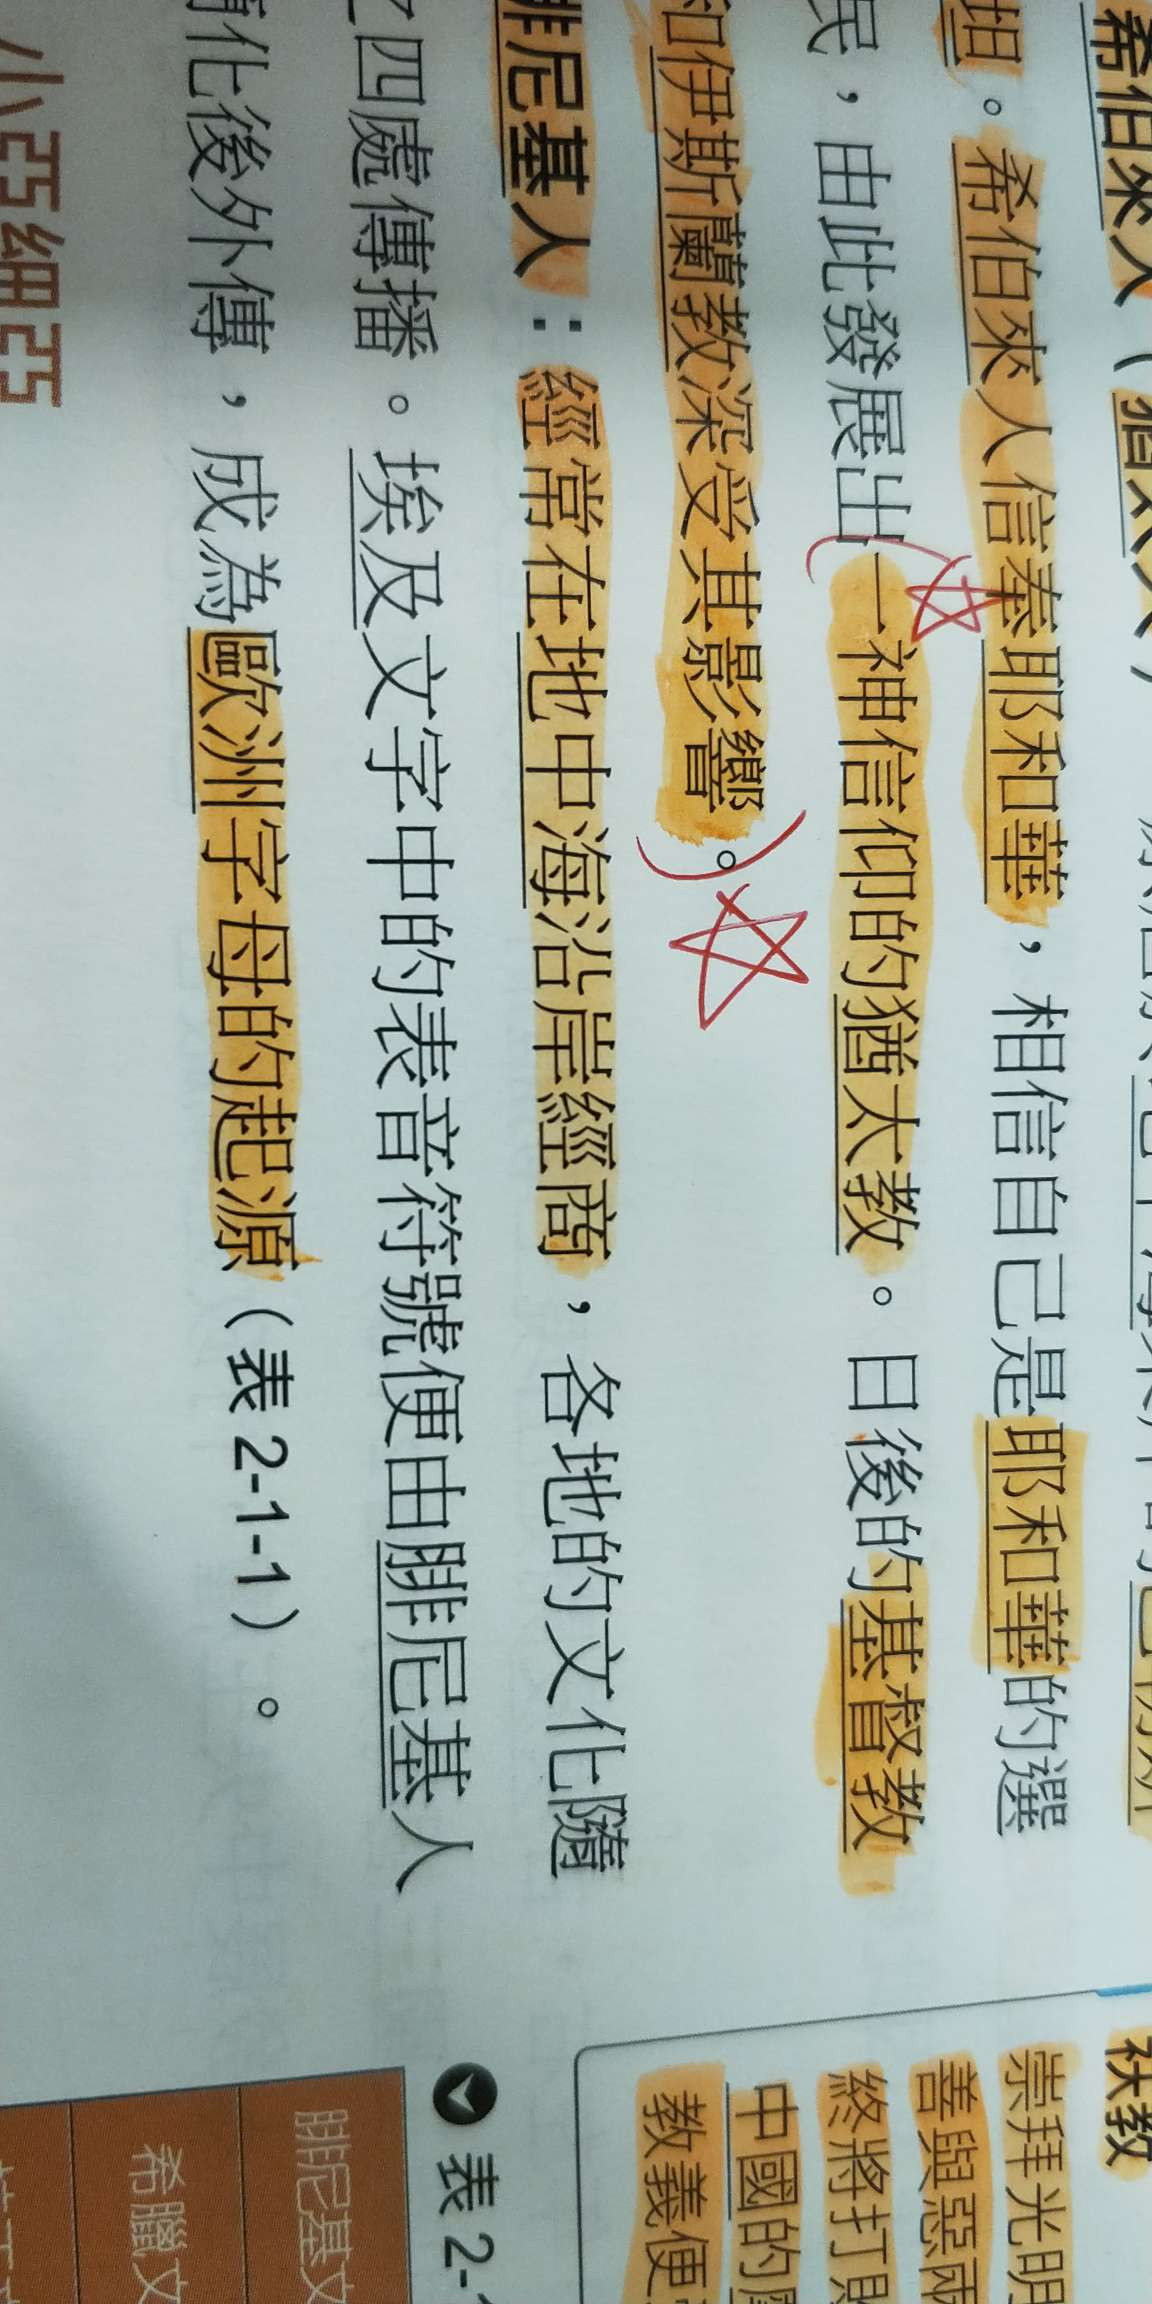 希伯來人（猶太人）
坦。希伯來人信奉耶和華，相信自己是耶和華的選
民，由此發展出一神信仰的猶太教。日後的基督教
和伊斯蘭教深受其影響。
腓尼基人：經常在地中海沿岸經商，各地的文化隨
之四處傳播。埃及文字中的表音符號便由腓尼基人
化後外傳，成為歐洲字母的起源（表 2-1-1）。
小亞細亞
祆教
崇拜光明
善與惡兩
終將打敗
中國的
教義便
表 2-
腓尼基文
希臘文